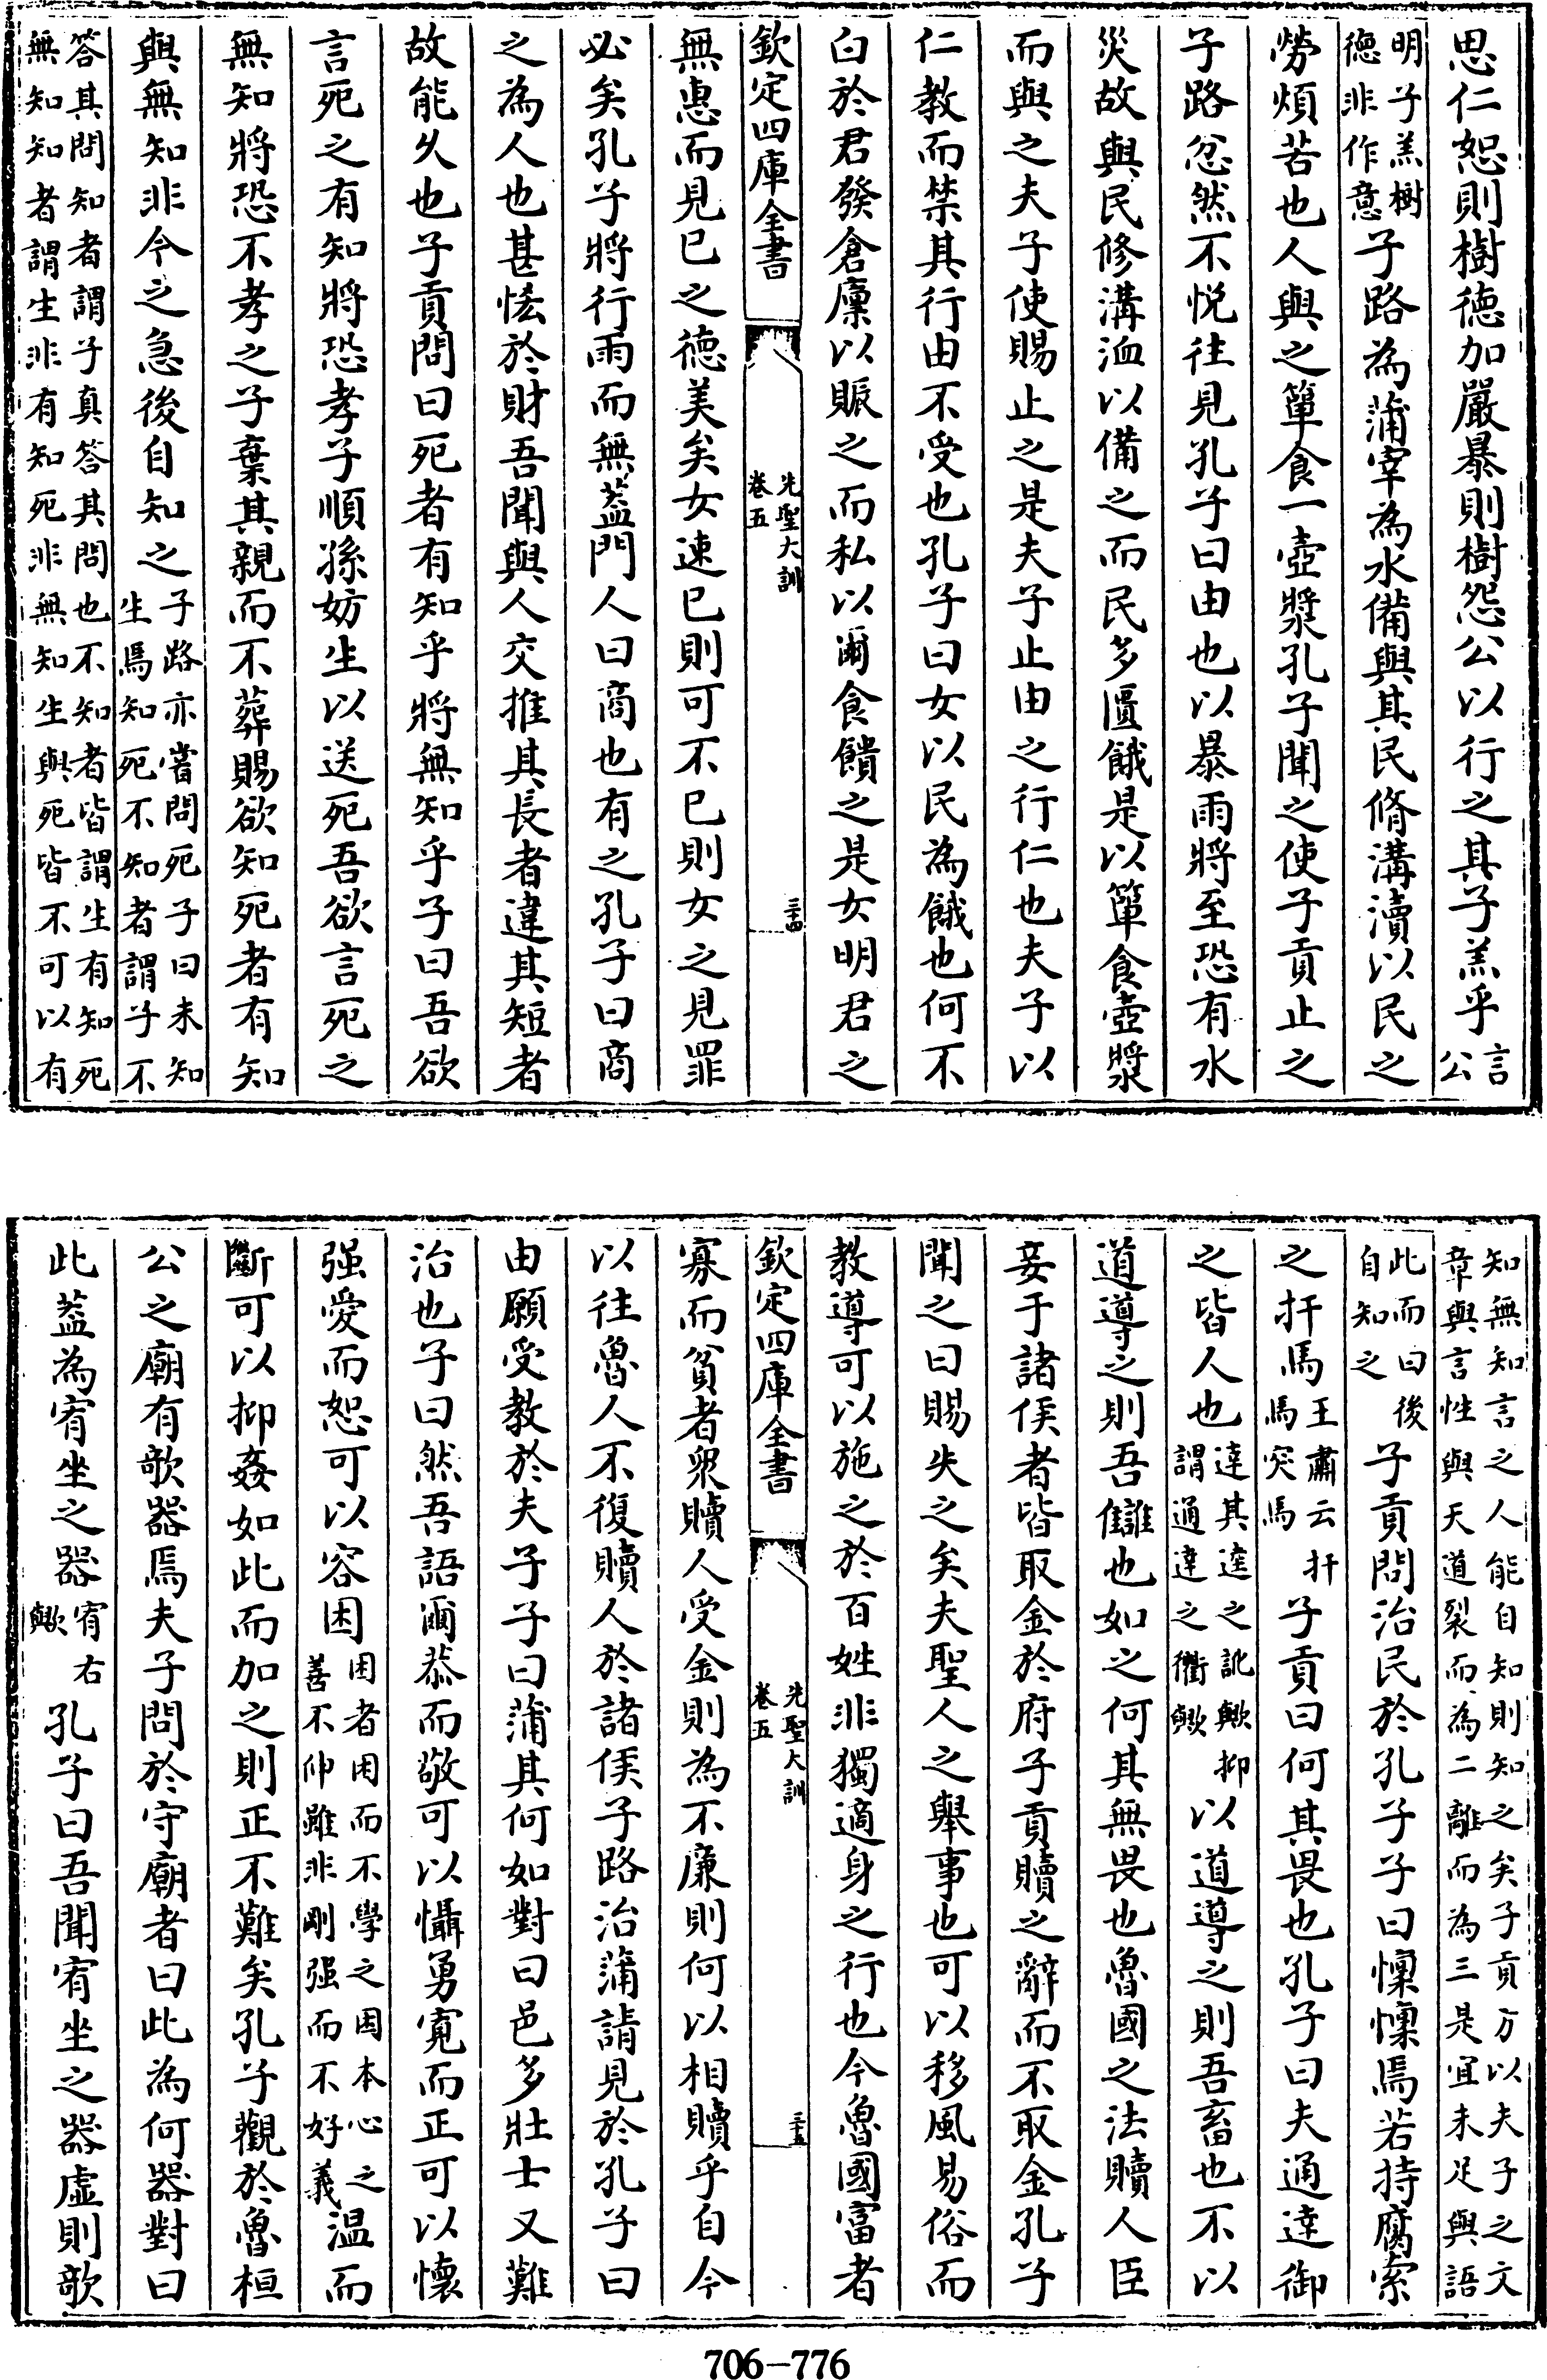 思仁恕則樹徳加嚴暴則樹怨公以行之其子羔乎言公
明子羔樹徳非作意子路為蒲宰為水備與其民脩溝瀆以民之
勞煩苦也人與之簞食一壺漿孔子聞之使子貢止之
子路忿然不悦往見孔子曰由也以暴雨將至恐有水
災故與民修溝洫以備之而民多匱餓是以簞食壺漿
而與之夫子使賜止之是夫子止由之行仁也夫子以
仁教而禁其行由不受也孔子曰女以民為餓也何不
白於君發倉廩以賑之而私以爾食饋之是女明君之
欽定四庫全書 先聖大訓 卷五 三十四
無惠而見已之徳美矣女速已則可不已則女之見罪
必矣孔子將行雨而無蓋門人曰商也有之孔子曰商
之為人也甚恡於財吾聞與人交推其長者違其短者
故能久也子貢問曰死者有知乎將無知乎子曰吾欲
言死之有知將恐孝子順孫妨生以送死吾欲言死之
無知將恐不孝之子棄其親而不葬賜欲知死者有知
與無知非今之急後自知之子路亦嘗問死子曰未知生焉知死不知者謂子不
答其問知者謂子真答其問也不知者皆謂生有知死無知知者謂生非有知死非無知生與死皆不可以有
知無知言之人能自知則知之矣子貢方以夫子之文章與言性與天道裂而為二離而為三是宜未足與語
此而曰後自知之子貢問治民於孔子子曰懍懍焉若持腐索
之扞馬王肅云扞馬突馬子貢曰何其畏也孔子曰夫通達御
之皆人也達其逵之訛歟抑謂通達之衢歟以道導之則吾畜也不以
道導之則吾讎也如之何其無畏也魯國之法贖人臣
妾于諸侯者皆取金於府子貢贖之辭而不取金孔子
聞之曰賜失之矣夫聖人之舉事也可以移風易俗而
教導可以施之於百姓非獨適身之行也今魯國富者
欽定四庫全書 先聖大訓 卷五 三十五
寡而貧者衆贖人受金則為不廉則何以相贖乎自今
以往魯人不復贖人於諸侯子路治蒲請見於孔子曰
由願受教於夫子子曰蒲其何如對曰邑多壮士又難
治也子曰然吾語爾恭而敬可以懾勇寛而正可以懷
强愛而恕可以容困困者困而不學之困本心之善不伸雖非剛强而不好義温而
斷可以抑姦如此而加之則正不難矣孔子觀於魯桓
公之廟有欹器焉夫子問於守廟者曰此為何器對曰
此蓋為宥坐之器宥右歟孔子曰吾聞宥坐之器虛則欹
706-776